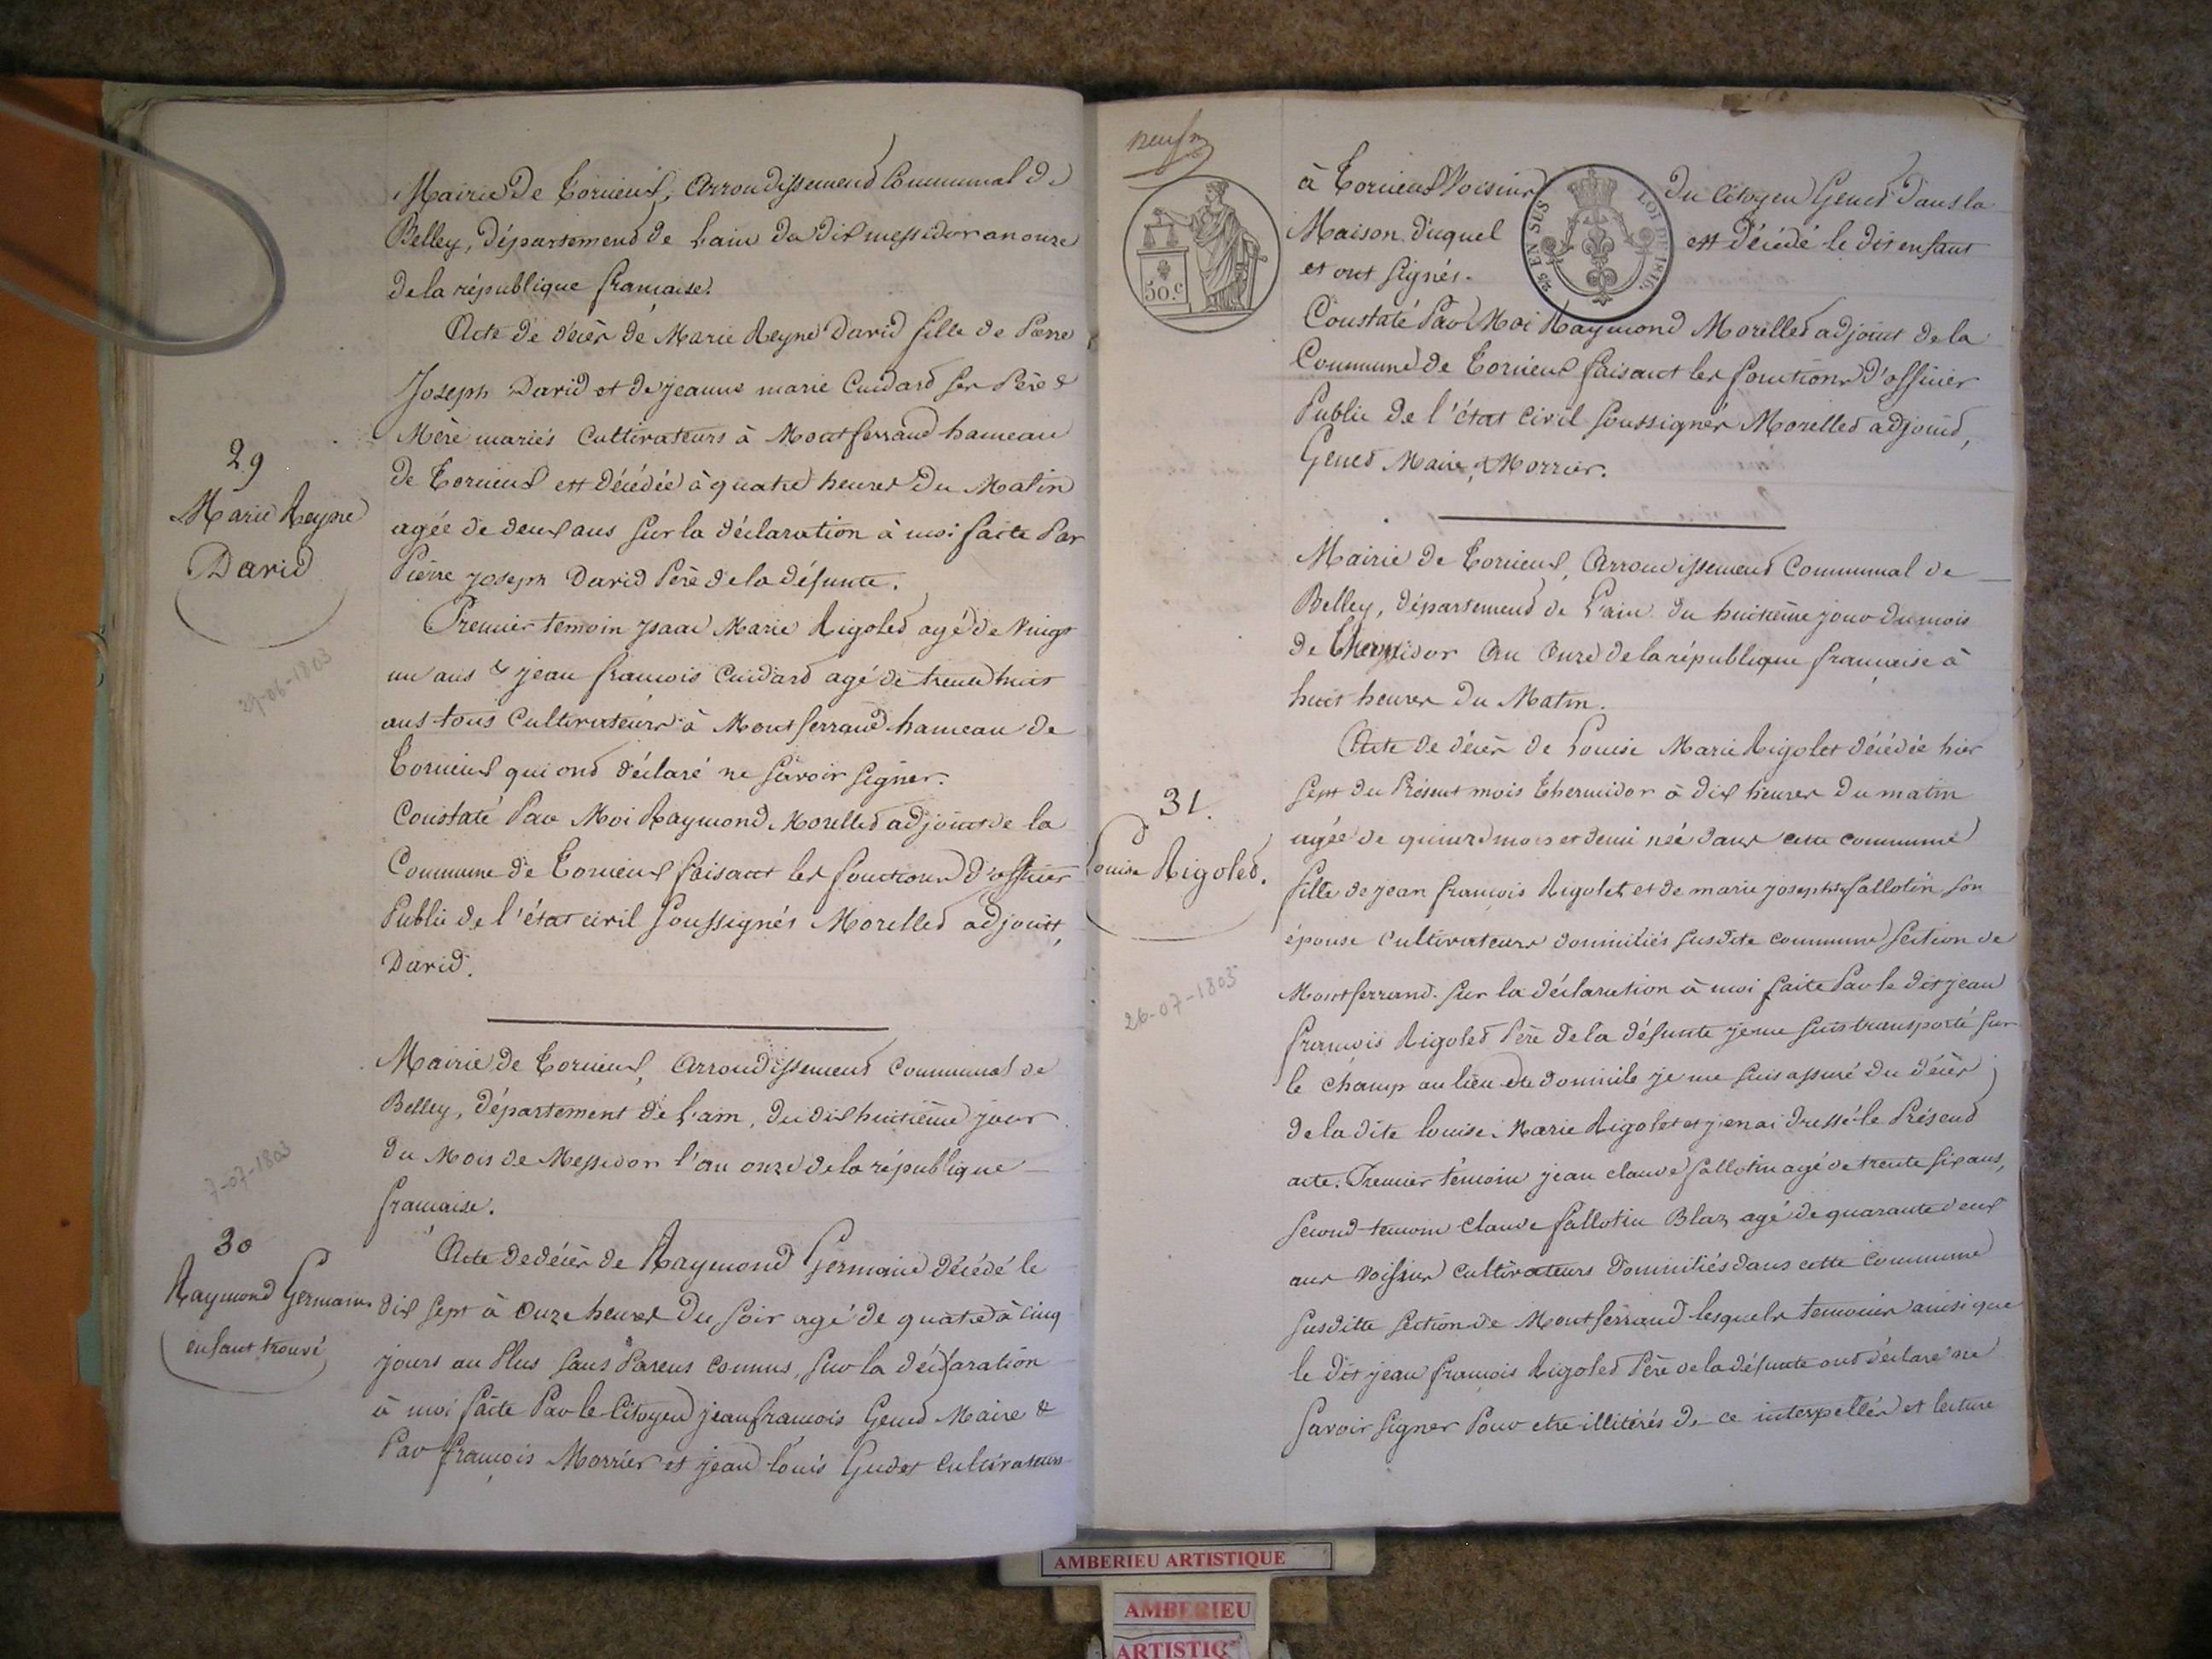 Mairie de Torcieux, Arrondissement Communal de
Belley, département de L'ain du dix messidor an onze
de la république française.
Acte de décès de Marie Reyne David fille de Pierre
Joseph David et de jeanne marie Cuidard ses Père &
Mère mariés Cultivateurs à Montferrand hameau
de Torcieux est décédée à quatre heures du Matin
agée de deux ans sur la déclaration à moi faite Par
Pierre Joseph David Père de la défunte.
Premier temoin ysaac Marie Rigolet agé de Vingt
un ans & jean françois Cuidard agé de trente huit
ans tous Cultivateurs à Montferrand hameau de
Torcieux qui ont déclaré ne savoir signer.
Constaté Par Moi Raymond Morellet adjoint de la
Commune de Torcieux faisant les fonctions d'officier
Public de l'état civil soussignés Morellet adjoint,
David.
29
Marie Reyne
David
29-06-1803
Mairie de Torcieux, Arrondissement Communal de
Belley, département de L'ain, du dix huitième jour
du Mois de Messidor l'an onze de la république
française.
7-07-1803
30
Raymond Germain
enfant trouvé
Acte de décès de Raymond Germain décédé le
dix sept à Onze heures du soir agé de quatre à cinq
jours au Plus sans Parens connus, sur la déclaration
à moi faite Par le Citoyen jean françois Genet Maire &
Par françois Morrier et jean louis Gudet cultivateurs
neuf
50.c
25 EN SUS
LOI DE 1816
à Torcieux Voisins du Citoyen Genet dans la
Maison duquel est décédé le dit enfant
et ont signés.
Constaté Par Moi Raymond Morellet adjoint de la
Commune de Torcieux faisant les fonctions d'officier
Public de l'état civil soussignés Morellet adjoint,
Genet Maire, & Morrier.
Mairie de Torcieux, Arrondissement Communal de
Belley, département de L'ain du huitième jour du mois
de thermidor An Onze de la république française à
huit heures du Matin.
Acte de décès de Louise Marie Rigolet décédée hier
sept du Présent mois thermidor à dix heures du matin
agée de quinze mois et demi née dans cette commune
fille de jean françois Rigolet et de marie josephte fallotin son
épouse cultivateurs domiciliés susdite commune section de
Montferrand. sur la déclaration à moi faite Par le dit jean
françois Rigolet Père de la défunte je me suis transporté sur
le champ au lieu de domicile je me suis assuré du décès
de la dite louise Marie Rigolet et j'en ai dressé le Présent
acte. Premier témoin jean claude fallotin agé de trente six ans,
second temoin claude fallotin Blaz agé de quarante deux
ans Voisins cultivateurs domiciliés dans cette commune
susditte section de Montferrand lesquels temoins ainsi que
le dit jean françois Rigolet Père de la défunte ont déclaré ne
savoir signer Pour etre illitérés de ce interpellés et lecture
31.
Louise Rigolet.
26-07-1803
AMBERIEU ARTISTIQUE
AMBERIEU
ARTISTIQ